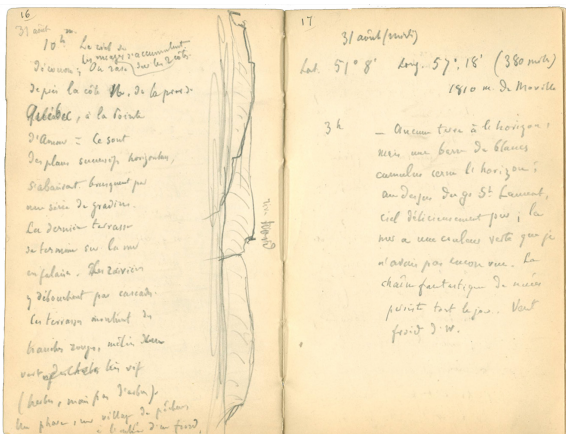 16
31 août
10h m. Le ciel se
les nuages s'accumulent
découvre; On rase sur les 2 côtés
de près la côte N. de la prov de
Québec, à la Pointe
d'Amour = ce sont
des plans successifs horizontaux,
s'abaissant brusquement par
une série de gradins.
La dernière terrasse
se termine sur la mer
en falaise. Des ravins
y débouchent par cascade.
Ces terrasses montrent des
tranches rouges, mêlées
vert très vif
(herbes, mais pas d'arbres)
Un phare, un village de pêcheurs
17
31 août (mardi)
Lat. 51° 8' Long. 57°. 18' (380 mill)
1810 m. de Moville
3h — Aucune terre à l'horizon;
mais une barre de blancs
cumulus cerne l'horizon;
au-dessus du St Laurent,
ciel délicieusement pur; la
mer a une couleur verte que je
n'avais pas encore vue. La
chaîne fantastique de nuées
persiste tout le jour. Vent
froid d'W.